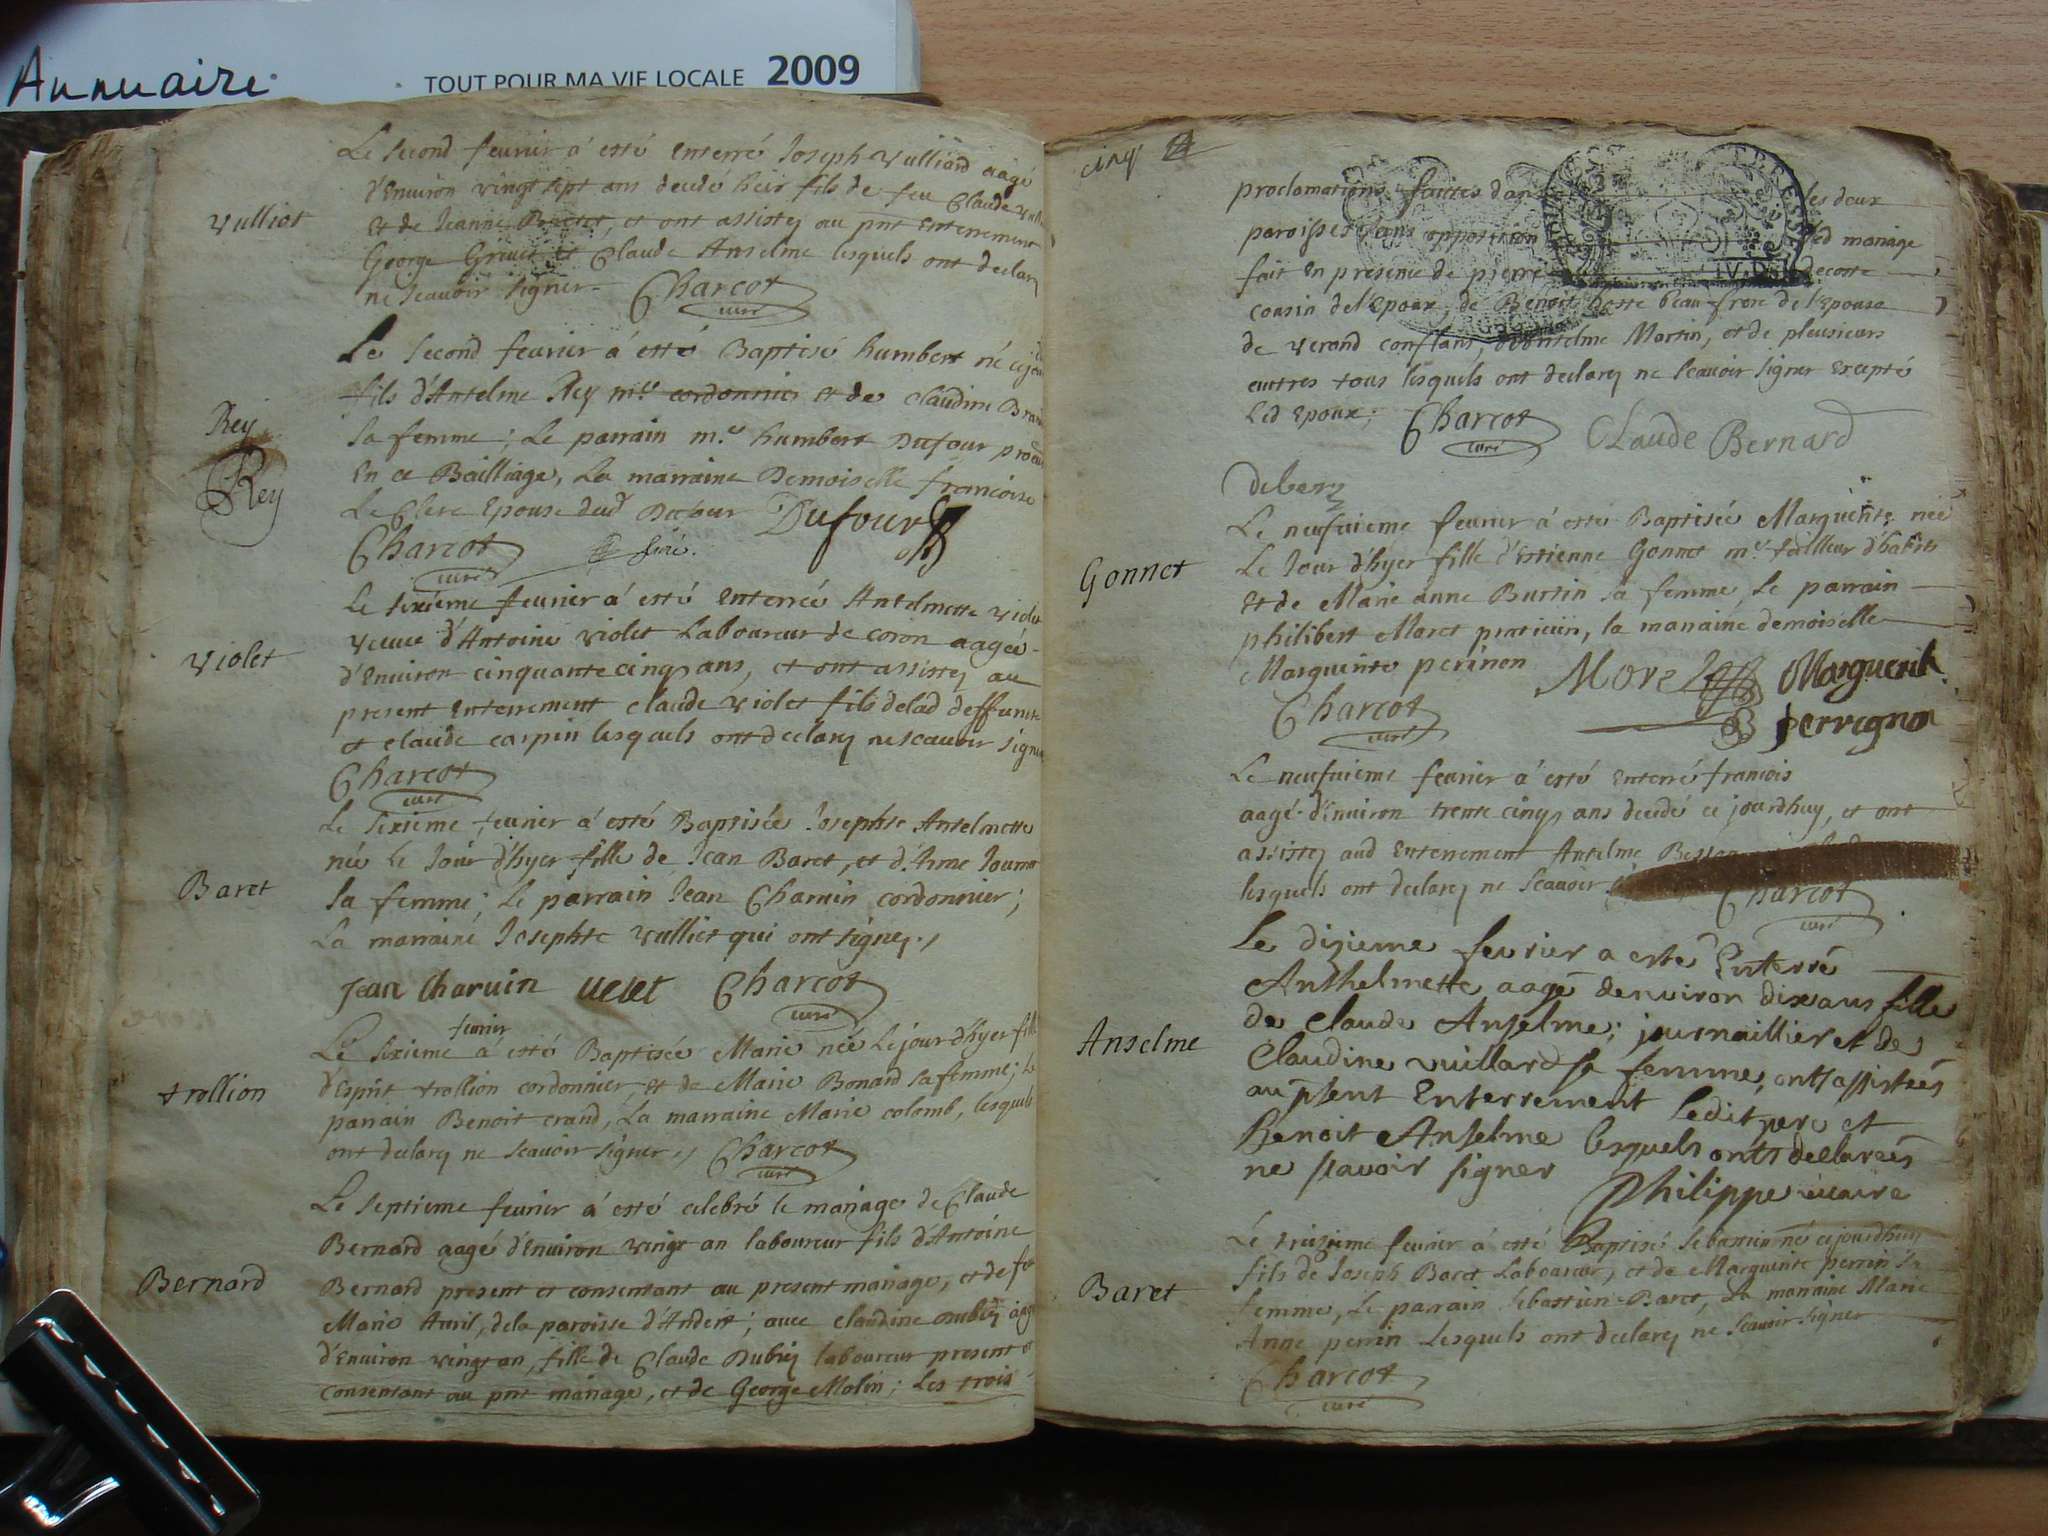 Annuaire
TOUT POUR MA VIE LOCALE 2009
Le second feurier a esté Enterré Joseph Vulliard aagé
d'Enuiron vingt sept ans decedé hier fils de feu Claude
Vulliot
et de Jeanne et ont assistez au pnt Enterrement
George et Claude Anselme lesquels ont declarez
ne scauoir signer Charcot
curé
Le second feurier a esté Baptisé humbert né
fils d'Antelme Rey mre cordonnier et de Claudine
Rey
sa femme; Le parrain mre humbert Dufour
Rey
En ce Bailliage, La marraine Demoiselle francoise
Le Clerc Epouse dud Dufour Dufour
Charcot
curé
Le sixieme feurier a esté Enterrée Antelmette violet
veuue d'Antoine violet Laboureur de coron aagée
violet
d'Enuiron cinquante cinq ans, et ont assistez au
present Enterrement claude violet fils de lad deffuncte
et claude carpin lesquels ont declarez ne scauoir signer
Charcot
curé
Le sixieme feurier a esté Baptisée Josephte Antelmette
née Le Jour d'hyer fille de Jean Baret, et d'Anne
Baret
sa femme; Le parrain Jean Charuin cordonnier;
La marraine Josephte vulliet qui ont signez.
Jean Charuin Charcot
curé
feurier
Le sixieme a esté Baptisée Marie née Le jour d'hyer fille
d'Esprit trollion cordonnier, et de Marie Bonard sa femme; Le
trollion
parrain Benoit crand, La marraine Marie colomb, lesquels
ont declarez ne scauoir signer, Charcot
curé
Le septieme feurier a esté celebré le mariage de Claude
Bernard aagé d'Enuiron vingt an laboureur fils d'Antoine
Bernard
Bernard present et consentant au present mariage, et de feu
Marie Auril, de la paroisse d'Andert; auec claudine Dubiez
d'Enuiron vingt an, fille de Claude Dubiez laboureur present et
consentant au pnt mariage, et de George Molin; Les trois
cinq
proclamations faites dans les deux
paroisses sans opposition led mariage
fait En presence de pierre decoste
cousin de l'Epoux, de Benoit beau frere de l'Epouse
de verand conflans, Antelme Martin, et de pleusieurs
autres tous lesquels ont declarez ne scauoir signer Excepté
Led Epoux; Charcot Claude Bernard
curé
Le neufuieme feurier a esté Baptisée Marguerite née
Le Jour d'hyer fille d'Estienne Gonnet mre tailleur d'habits
Gonnet
Et de Marie anne Burtin sa femme, Le parrain
philibert Moret praticien, la marraine demoiselle
Marguerite perinon Morel Marguerite
Charcot perrignon
curé
Le neufuieme feurier a esté Enterré francois
aagé d'Enuiron trente cinq ans decedé ce jourdhuy, et ont
assistez aud Enterrement Antelme
lesquels ont declarez ne scauoir Charcot
curé
Le dizieme feurier a esté Enterré
Anthelmette aagé denuiron dix ans fille
de Claude Anselme; journaillier et de
Anselme
Claudine vuillard sa femme, onts assistéés
au psent Enterrement ledit pere et
Benoit Anselme lesquels onts declareés
ne scavoir signer
Philippe vicaire
Le treizieme feurier a esté Baptisé sebastien né cejourdhuy
fils de Joseph Baret Laboureur, et de Marguerite perrin sa
Baret
femme, Le parrain sebastien Baret, La marraine Marie
Anne perrin Lesquels ont declarez ne scauoir signer
Charcot
curé